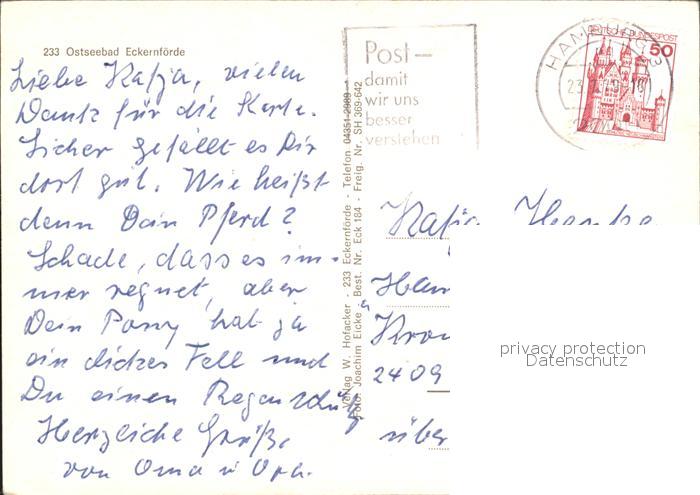 233 Ostseebad Eckernförde
Liebe Katja, vielen
Dank für die Karte.
Sicher gefällt es Dir
dort gut. Wie heißt
denn Dein Pferd?
Schade, dass es im-
mer regnet, aber
Dein Pony hat ja
ein dickes Fell und
Du einen Regenschutz
Herzliche Grüße
von Oma u Opa.
Verlag W. Hofacker - 233 Eckernförde - Telefon 04351-2089
Foto: Joachim Eicke - Best. Nr. Eck 184 - Freig. Nr. SH 369-642
Post-
damit
wir uns
besser
verstehen
HAMBURG
DEUTSCHE BUNDESPOST
50
Katja
2409
über
privacy protection
Datenschutz